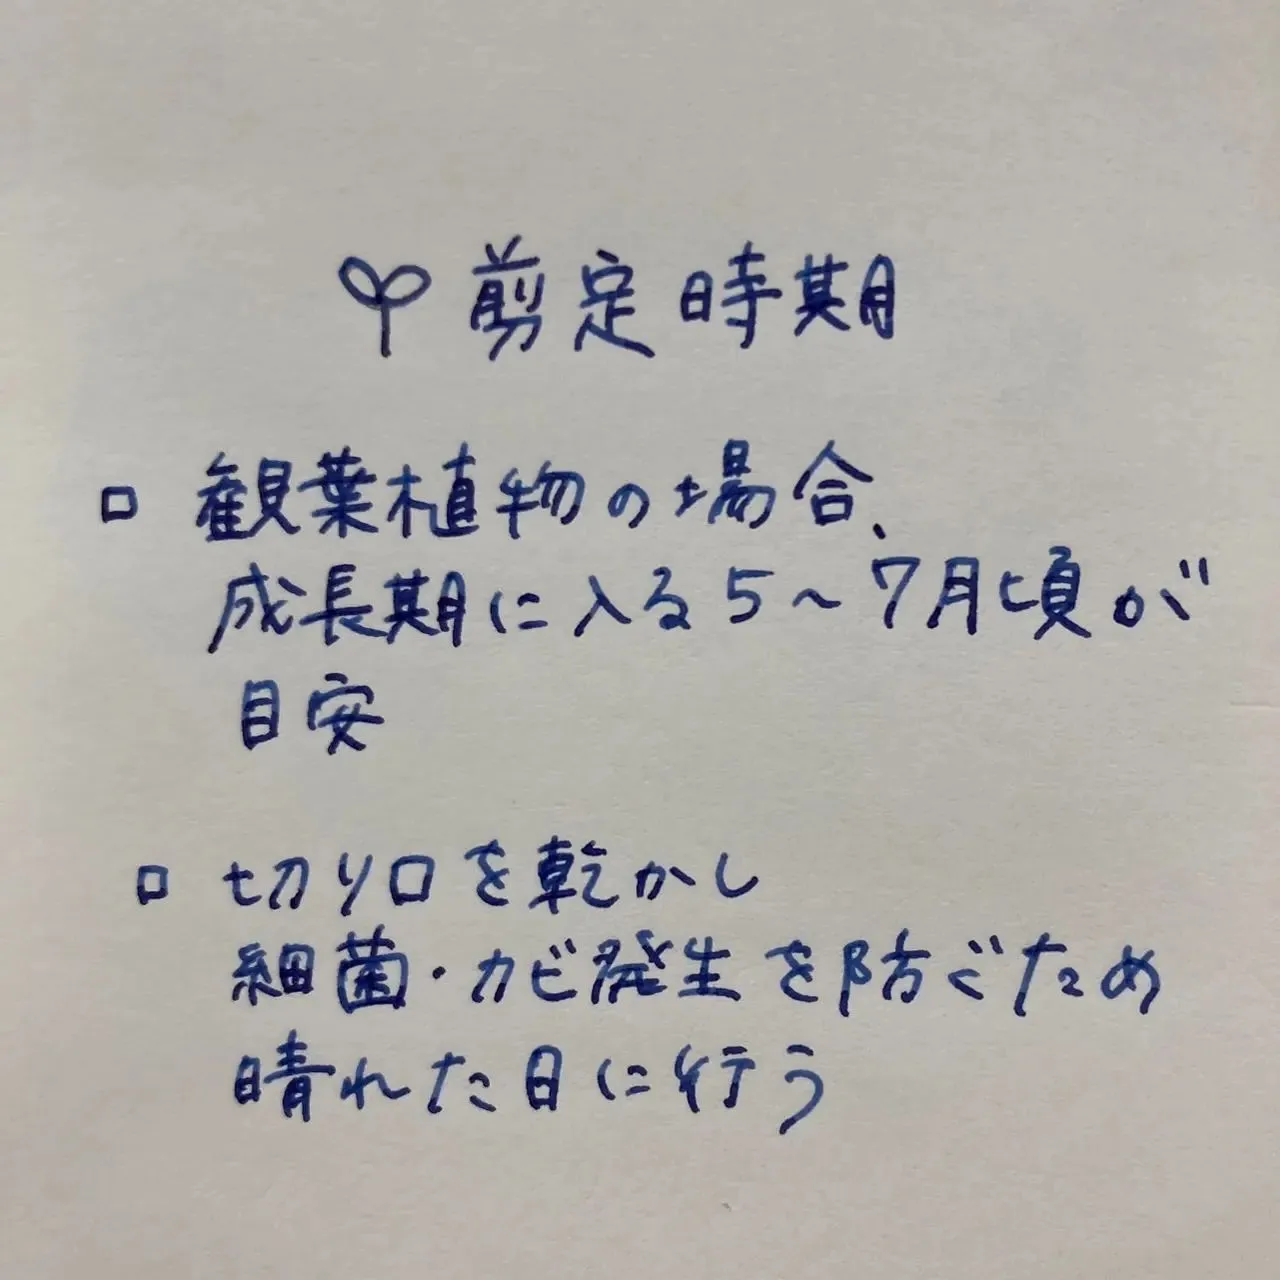 剪定時期
□ 観葉植物の場合、
成長期に入る5〜7月頃が
目安
□ 切り口を乾かし
細菌・カビ発生を防ぐため
晴れた日に行う